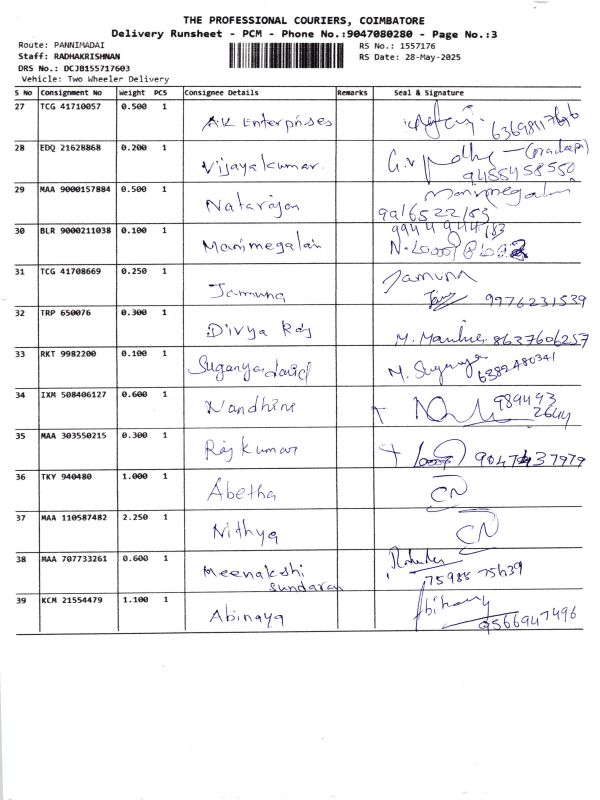 THE PROFESSIONAL COURIERS, COIMBATORE
Delivery Runsheet - PCM - Phone No.:9047080280 - Page No.:3
Route: PANNIMADAI
RS No.: 1557176
Staff: RADHAKRISHNAN
RS Date: 28-May-2025
DRS No.: DCJB155717603
Vehicle: Two Wheeler Delivery
S No Consignment No Weight PCS Consignee Details Remarks Seal & Signature
27 TCG 41710057 0.500 1 AK Enterprises
28 EDQ 21628868 0.200 1 Vijayakumar. (pradeep)
9455458550
29 MAA 9000157884 0.500 1 Natarajan Manimegalai
9916522183
30 BLR 9000211038 0.100 1 Manimegalai 9944944183
31 TCG 41708669 0.250 1 Jamuna Jamuna
9976231539
32 TRP 650076 0.300 1 Divya Raj 8637606257
33 RKT 9982200 0.100 1 Suganya david M. Suganya
6382480341
34 IXM 508406127 0.600 1 Nandhini 989493
2644
35 MAA 303550215 0.300 1 Raj kumar 9047437979
36 TKY 940480 1.000 1 Abetha CN
37 MAA 110587482 2.250 1 Nithya CN
38 MAA 707733261 0.600 1 Meenakshi
sundaran 75988 75639
39 KCM 21554479 1.100 1 Abinaya
9566947496